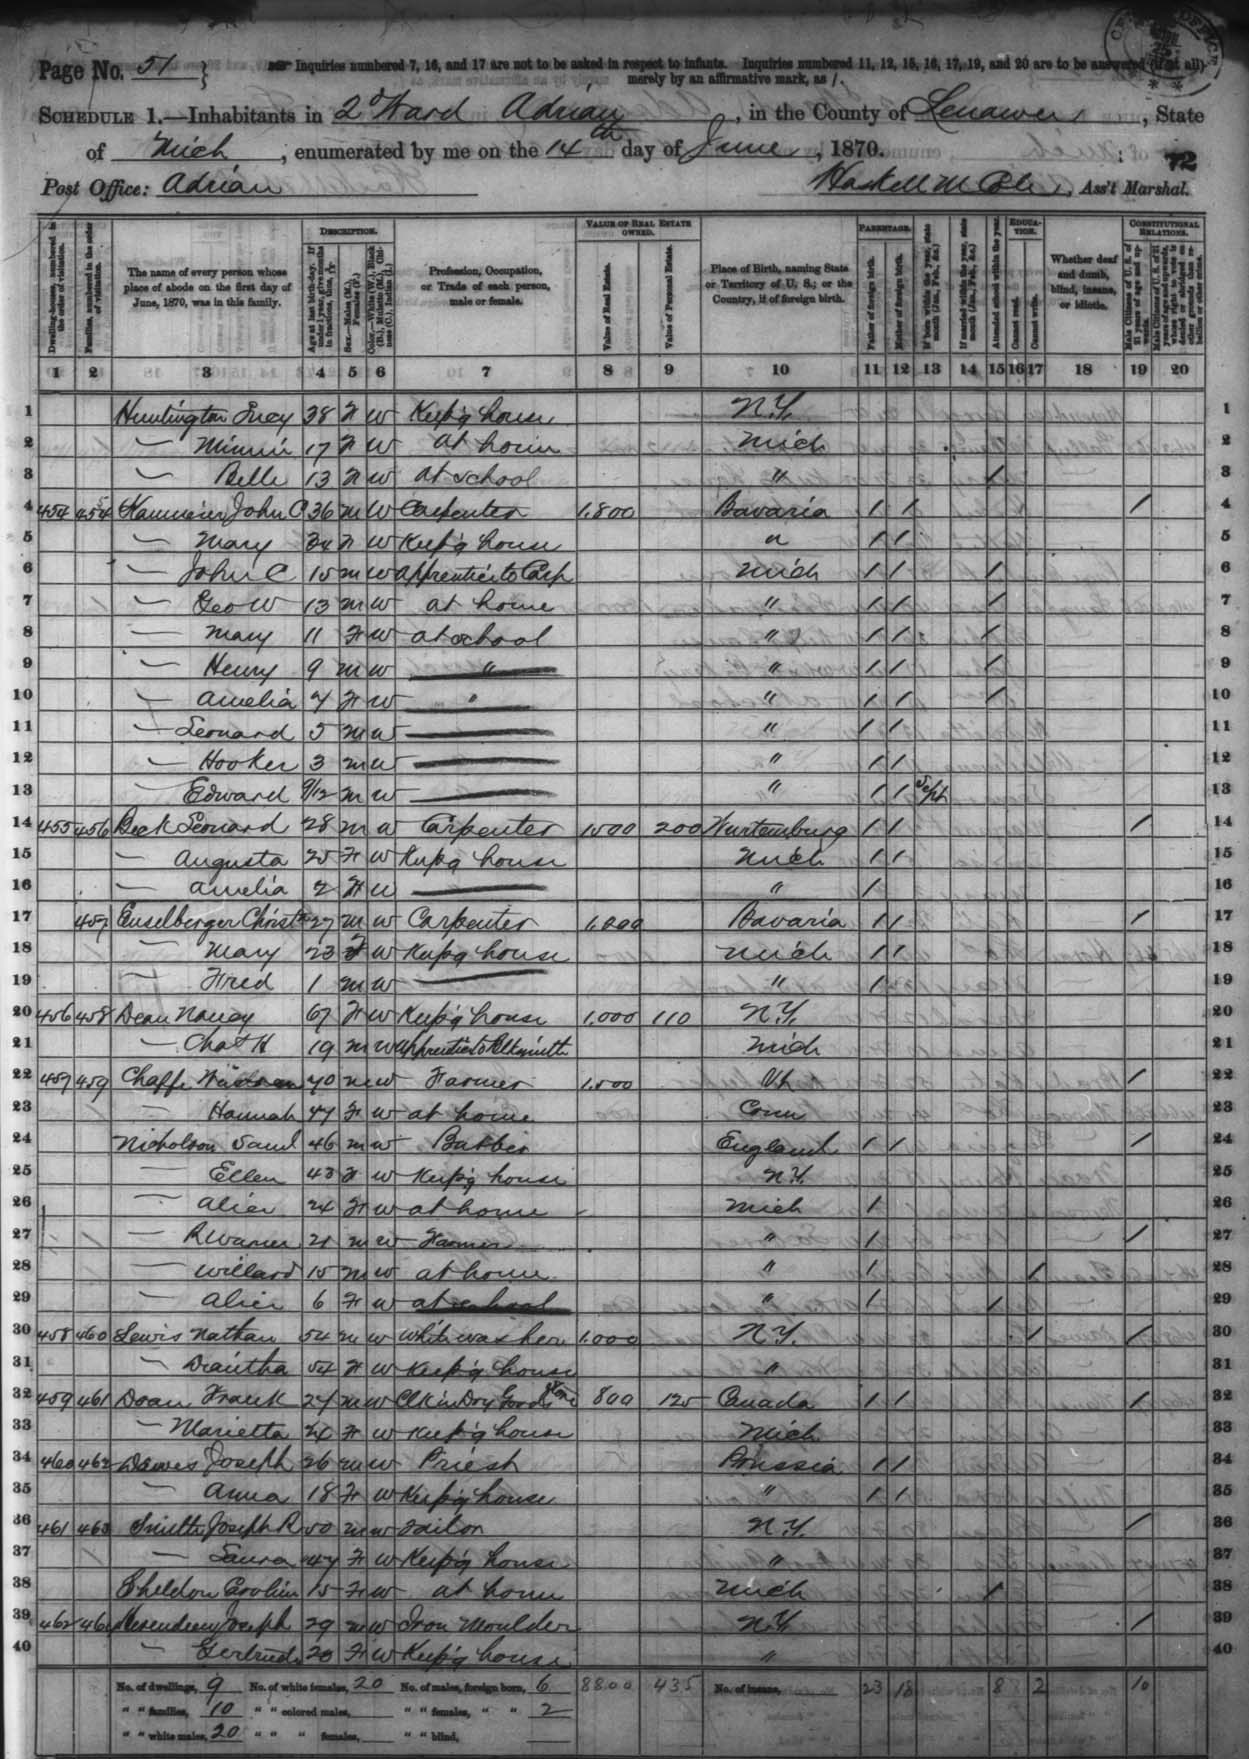 Page No. 51 } Inquiries numbered 7, 16, and 17 are not to be asked in respect to infants. Inquiries numbered 11, 12, 15, 16, 17, 19, and 20 are to be answered (if at all)
merely by an affirmative mark, as /.
SCHEDULE 1.—Inhabitants in 2d Ward Adrian, in the County of Lenawee, State
of Mich, enumerated by me on the 14th day of June, 1870.
72
Post Office: Adrian Haskell M Cole, Ass't Marshal.
DESCRIPTION. VALUE OF REAL ESTATE OWNED. PARENTAGE. EDUCATION. CONSTITUTIONAL RELATIONS.
Dwelling-houses, numbered in the order of visitation.
Families, numbered in the order of visitation.
The name of every person whose place of abode on the first day of June, 1870, was in this family.
Age at last birth-day. If under 1 year, give months in fractions, thus, 3/12
Sex.—Males (M.), Females (F.)
Color.—White (W.), Black (B.), Mulatto (M.), Chinese (C.), Indian (I.)
Profession, Occupation, or Trade of each person, male or female.
Value of Real Estate.
Value of Personal Estate.
Place of Birth, naming State or Territory of U. S.; or the Country, if of foreign birth.
Father of foreign birth.
Mother of foreign birth.
If born within the year, state month (Jan., Feb., &c.)
If married within the year, state month (Jan., Feb., &c.)
Attended school within the year.
Cannot read.
Cannot write.
Whether deaf and dumb, blind, insane, or idiotic.
Male Citizens of U. S. of 21 years of age and upwards.
1 2 3 4 5 6 7 8 9 10 11 12 13 14 15 16 17 18 19 20
1 Huntington Lucy 38 F W Keep'g house N.Y. 1
2 — Minnie 17 F W at home Mich 2
3 — Belle 13 F W at school " / 3
4 454 454 John C 36 M W Carpenter 1,800 Bavaria / / / 4
5 — Mary 34 F W Keep'g house " / / 5
6 — John C 15 M W apprentice to Carp Mich / / / 6
7 — Geo W 13 M W at home " / / / 7
8 — Mary 11 F W at school " / / / 8
9 — Henry 9 M W " " / / / 9
10 — Amelia 7 F W " " / / / 10
11 — Leonard 5 M W — " / / 11
12 — Hooker 3 M W — " / / 12
13 — Edward 9/12 M W — " / / Sept 13
14 455 456 Beck Leonard 28 M W Carpenter 1500 200 Wurtemburg / / / 14
15 — Augusta 25 F W Keep'g house Mich / / 15
16 — Amelia 2 F W — " / 16
17 457 Enselberger Christn 27 M W Carpenter 1,200 Bavaria / / / 17
18 — Mary 23 F W Keep'g house Mich / / 18
19 — Fred 1 M W — " / 19
20 456 458 Dean Nancy 67 F W Keep'g house 1,000 110 N.Y. 20
21 — Chas H 19 M W apprentice to Blksmith Mich 21
22 457 459 Chaffe 70 M W Farmer 1,500 Vt / 22
23 — Hannah 47 F W at home Conn 23
24 Nicholson Saml 46 M W Barber England / / / 24
25 — Ellen 43 F W Keep'g house N.Y. 25
26 — Alice 24 F W at home Mich / 26
27 — R Warner 21 M W Farmer " / / 27
28 — Willard 15 M W at home " / / 28
29 — Alice 6 F W at school " / / 29
30 458 460 Lewis Nathan 54 M W White washer 1,000 N.Y. / / 30
31 — 54 F W Keep'g house " 31
32 459 461 Doan Frank 27 M W Clk in Dry Goods Store 800 125 Canada / / / 32
33 — Marietta 24 F W Keep'g house Mich 33
34 460 462 Dawes Joseph 26 M W Priest Prussia / / 34
35 — Anna 18 F W Keep'g house " / / 35
36 461 463 Smith Joseph R 50 M W Tailor N.Y. / 36
37 — Laura 47 F W Keep'g house " 37
38 Sheldon Caroline 15 F W at home Mich / 38
39 462 464 Joseph 29 M W Iron Moulder N.Y. / 39
40 — Gertrude 20 F W Keep'g house " 40
No. of dwellings, 9 No. of white females, 20 No. of males, foreign born, 6 8800 435 No. of insane, 23 18 8 2 10
" " families, 10 " " colored males, " " females, " " 2
" " white males, 20 " " " females, " " blind,